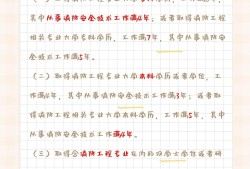 其中从事消防安全技术工作满4年；或者取得消防工程
相关专业大学专科学历，工作满7年，其中从事消防安
全技术工作满5年。
（二）取得消防工程专业大学本科学历或者学位，工
作满4年，其中从事消防安全技术工作满3年；或者取
得消防工程相关专业大学本科学历，工作满5年，其中
从事消防安全技术工作满4年。
（三）取得含消防工程专业在内的双学士学位或者研